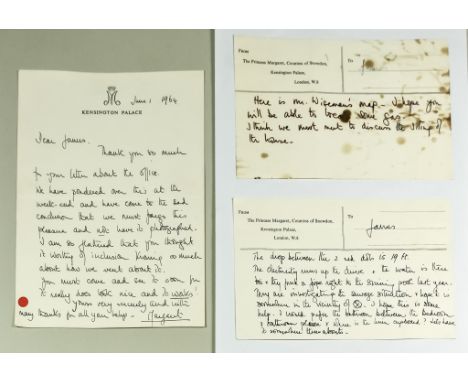 KENSINGTON PALACE
June 1 1964
Dear James.
Thank you so much
for your letter about the office
We have pondered over this at the
week-end and have come to the sad
conclusion that we must forego this
pleasure and not have it photographed.
I am so flattered that you thought
it worthy of inclusion knowing so much
about how we went about it.
You must come and see it soon for
it really does look nice and it works!
Yours very sincerely and with
many thanks for all your help - Margaret
The Princess Margaret, Countess of Snowdon,
Kensington Palace,
London, W.8
To
Here is Mr. Wiseman's map - I hope you
will be able to
I think we must meet to discuss the siting of
the house.
The Princess Margaret, Countess of Snowdon,
Kensington Palace,
London, W.8
To
James
The drop between the 2 red dots is 19 ft.
The electricity runs up the drive & the water is there
too & they put a pipe right to the swimming pool last year.
They are investigating the sewage situation & hope it is
somewhere in the vicinity of
I hope this is some
help. I would prefer the bathroom between the bedroom